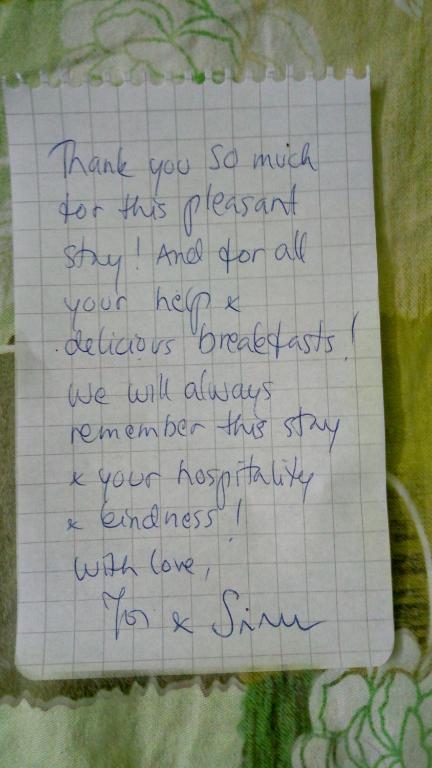 Thank you so much
for this pleasant
stay! And for all
your help &
delicious breakfasts!
We will always
remember this stay
& your hospitality
& kindness!
With love,
&